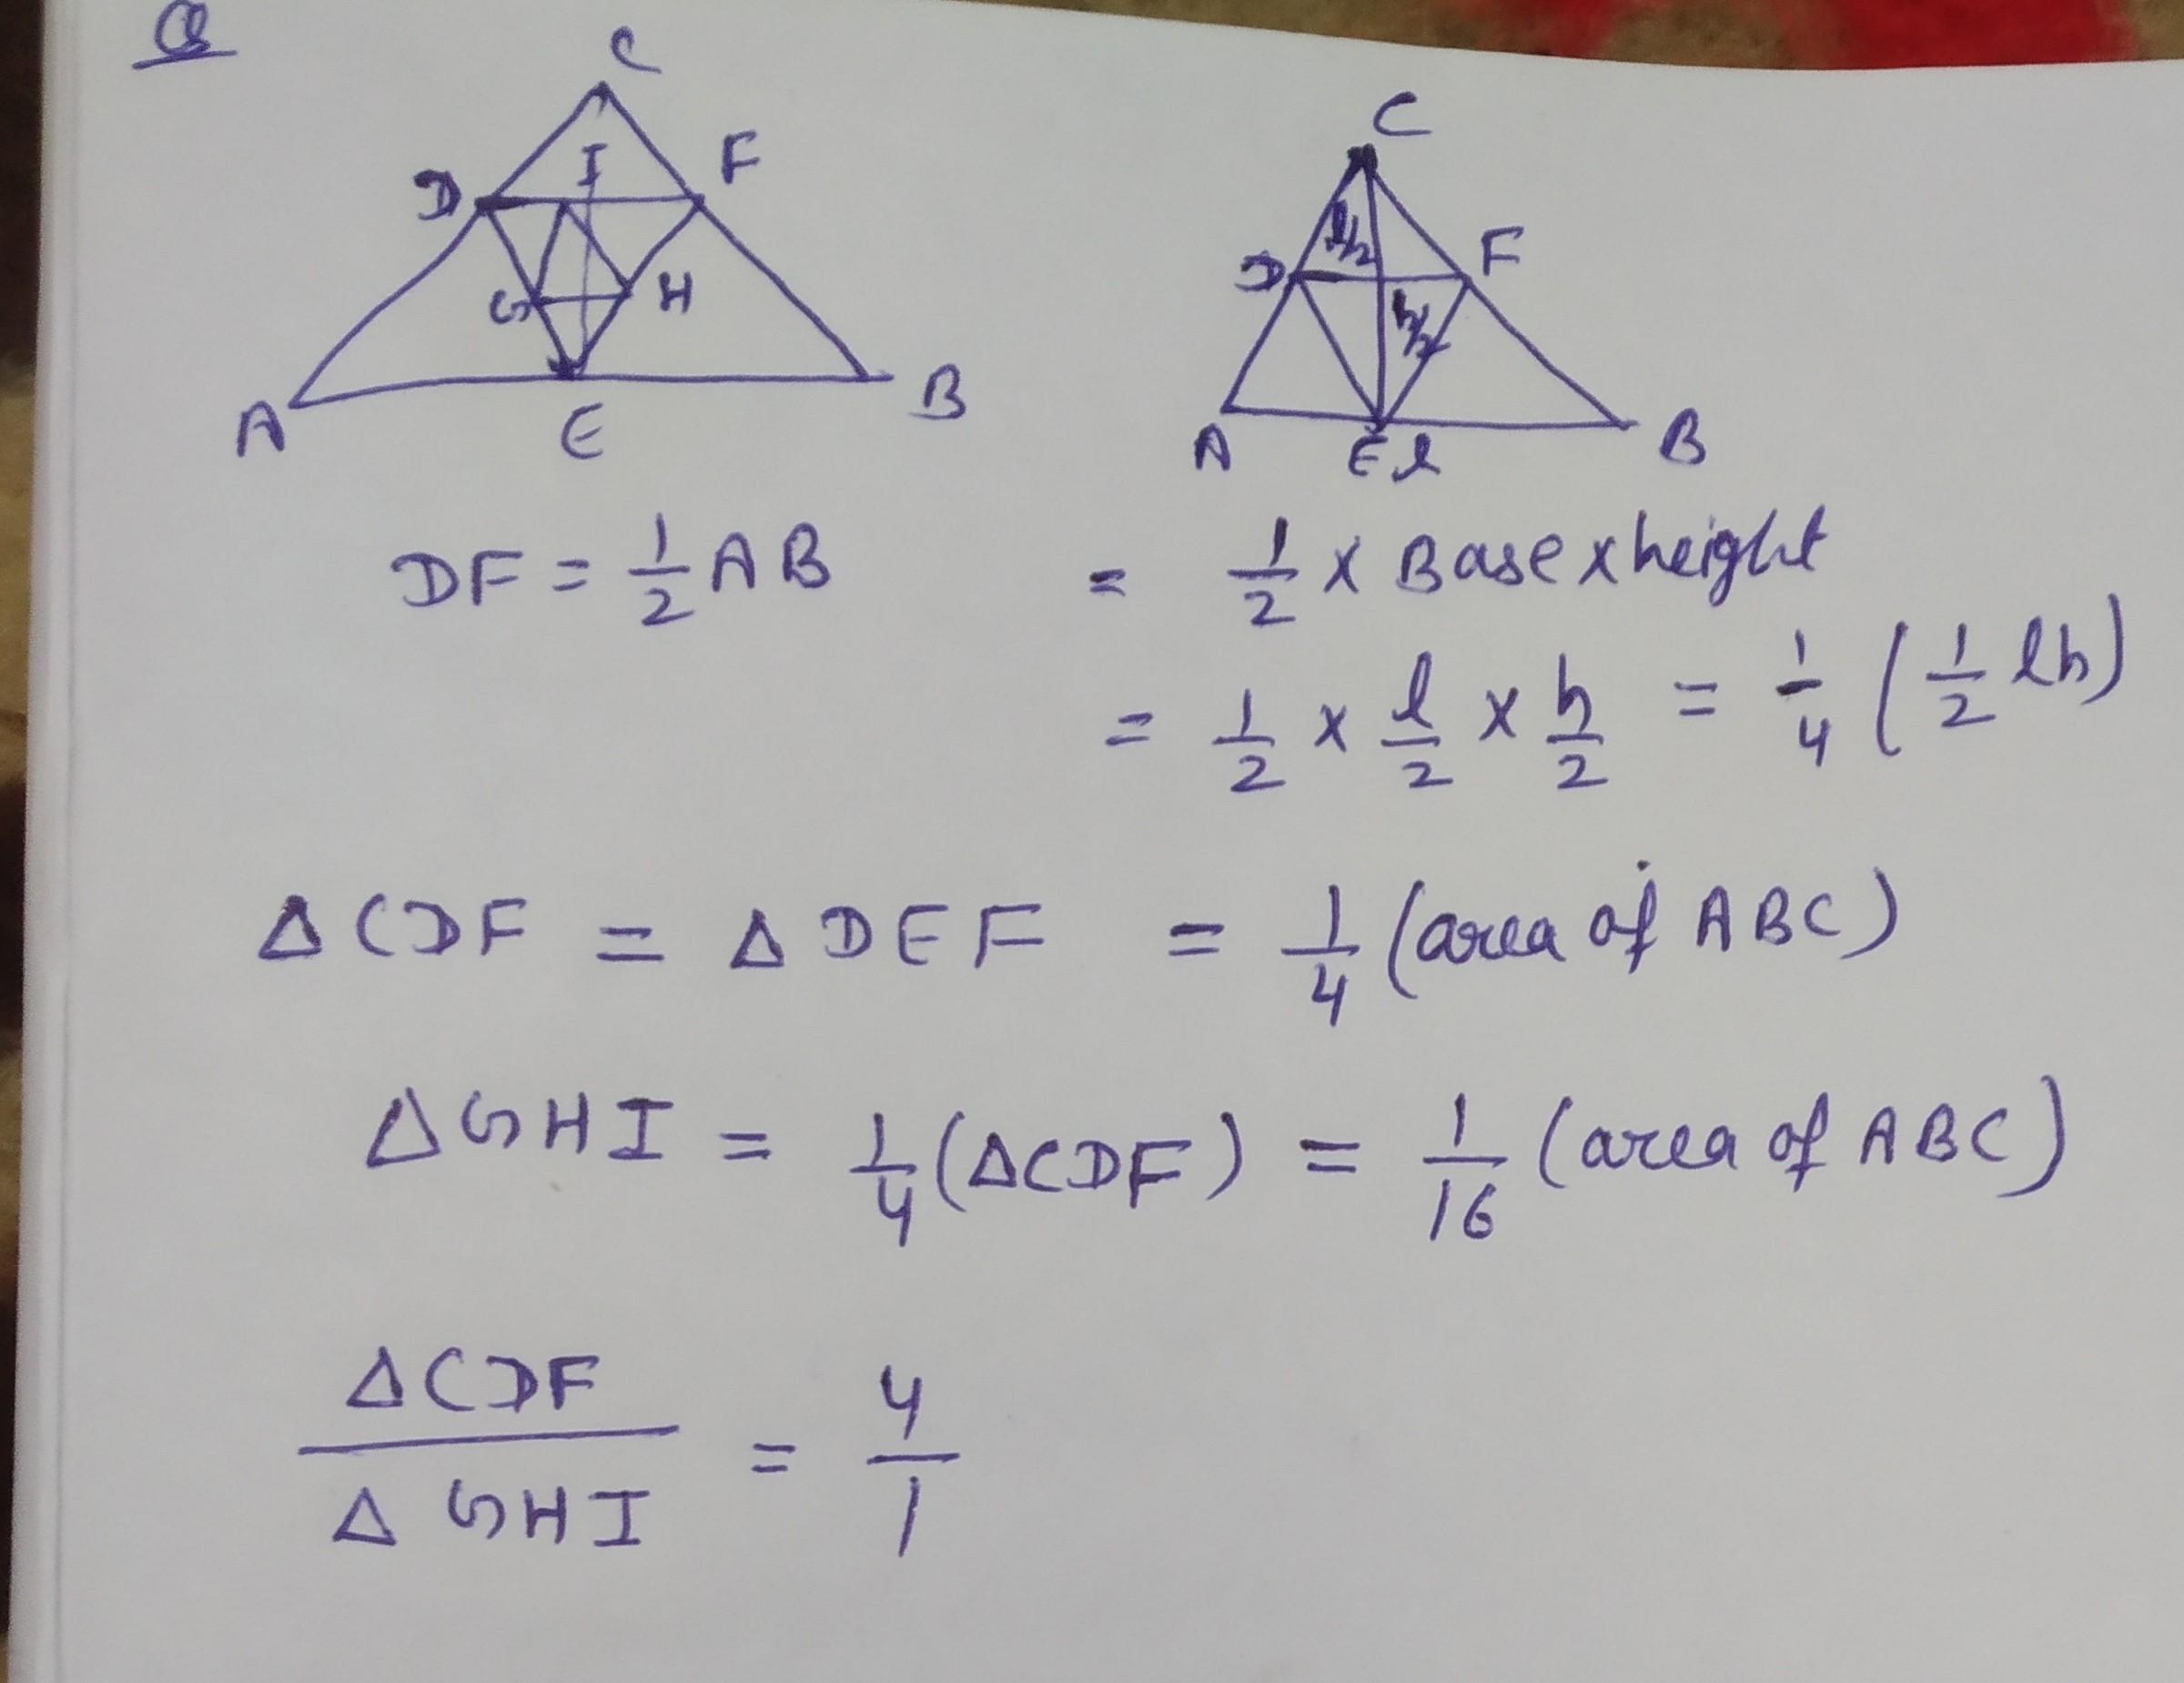 Q
C
D I F
G H
A E B
C
h/2
D F
h/2
A E l B
DF = 1/2 AB
= 1/2 x Base x height
= 1/2 x l/2 x h/2 = 1/4 (1/2 lh)
Δ CDF = Δ DEF = 1/4 (area of ABC)
Δ GHI = 1/4 (ΔCDF) = 1/16 (area of ABC)
ΔCDF / Δ GHI = 4/1